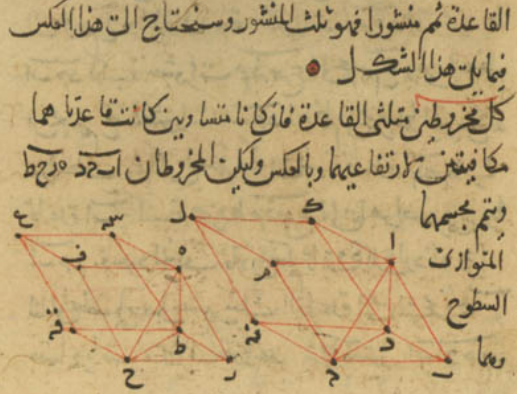 القاعدة ثم منشورا فهو ثلث المنشور وسنحتاج الى هذا العكس
فيما يلى هذا الشكل
كل مخروطين مثلثى القاعدة فان كانا متساويين كانت قاعدتا هما
مكافيتين لارتفاعيهما وبالعكس وليكن المخروطان ا ب ج د ه ر ح ط
ويتم مجسمهما
المتوازى
السطوح
وهما
ع س ل ك
ف ه م ا
ق ط ن د
ح ر ج ب